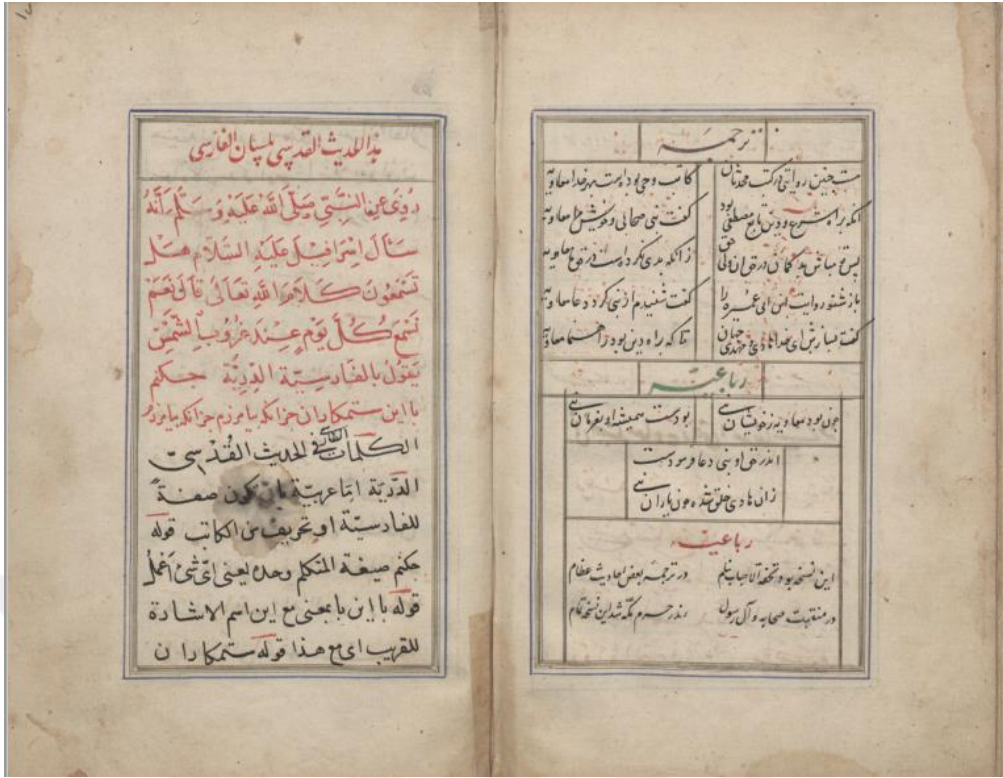 ترجمه
هست چنین روایتی در کتب محدثان
کاتب وحی بوده است بهر خدا معاویه
آنکه براه شرع و دین تابع مصطفی بود
گفت نبی صحابی و خویش مرا معاویه
پس تو مباش بد گمان در حق آن ولی حق
زانکه بدی نکرده است در حق ما معاویه
باز شنو روایت ابن ابی عمیره را
گفت شنیدم از نبی کرد دعا معاویه
گفت مبارزش ای خدا هادی و مهدی جهان
تا که براه دین بود راهنما معاویه
رباعیه
چون بود معاویه ز خویشان نبی
بودست همیشه او بفرمان نبی
اندر حق او نبی دعا فرمودست
زان هادی خلق شده چون یاران نبی
رباعیه
این نسخه بود تحفة الاصحاب بنام
در ترجمه بعض احادیث عظام
در منقبت صحابه و آل رسول
اندر حرم مکه شد این نسخه تمام
١٧
هذا الحديث القدسي بلسان الفارسى
رُوِىَ عَنِ النَّبِيِّ صَلَّى اللهُ عَلَيْهِ وَسَلَّمَ أَنَّهُ
سَأَلَ اِسْرَافِيلَ عَلَيْهِ السَّلَامُ هَلْ
تَسْمَعُونَ كَلَامَ اللهِ تَعَالَى قَالَ نَعَمْ
نَسْمَعُ كُلَّ يَوْمٍ عِنْدَ غُرُوبِ الشَّمْسِ
يَقُولُ بِالْفَارِسِيَّةِ الدُّرِّيَّةِ جكنم
با اين ستمكاران جزانكه بيامرزم جزانكه بيامرزم
الكلمات التي في الحديث القُدْسِيّ
الدّرّيّة امّا عربيّة بان يكون صفةً
للفارسيّة او تحريف من الكاتب قوله
جكنم صيغة المتكلم وحده يعنى اىّ شئ اَعْمَلُ
قوله با اين با بمعنى مع اين اسم الاشارة
للقريب اى مع هذا قوله ستمكاران